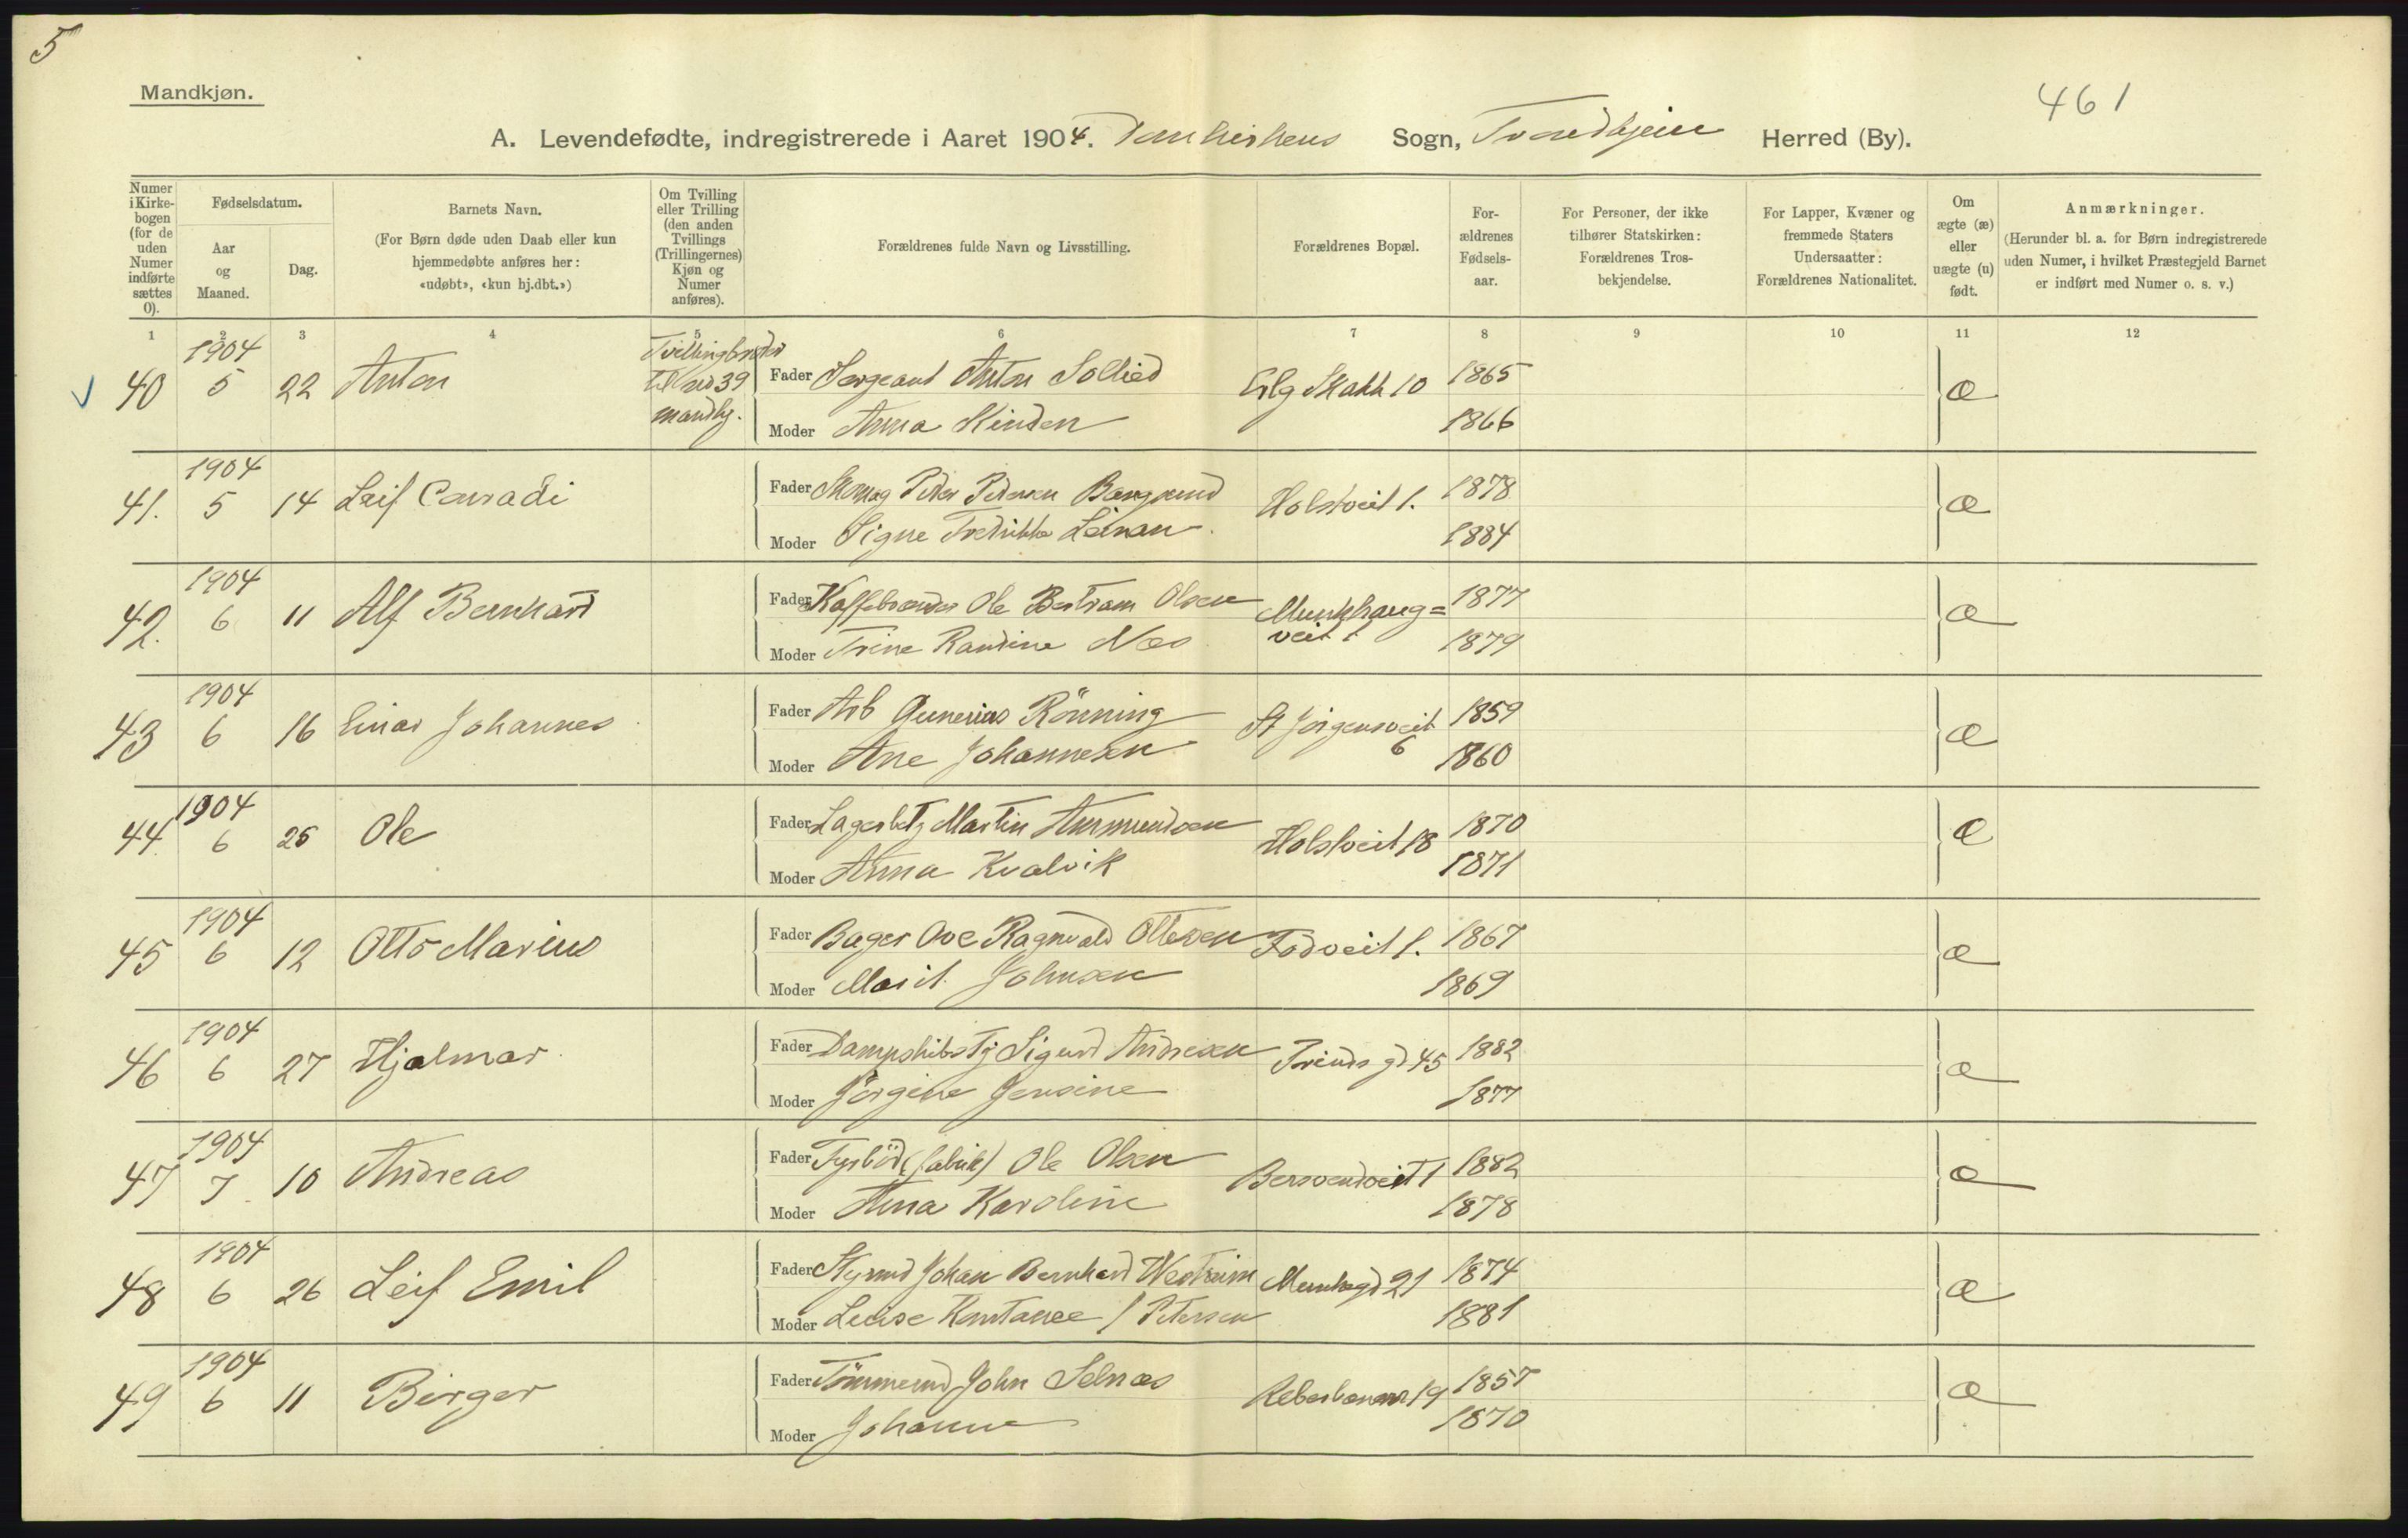 5
Mandkjøn.
461
A. Levendefødte, indregistrerede i Aaret 1904. Domkirkens Sogn, Trondhjem Herred (By).
Numer i Kirkebogen (for de uden Numer indførte sættes 0).
Fødselsdatum.
Aar og Maaned.
Dag.
Barnets Navn.
(For Børn døde uden Daab eller kun hjemmedøbte anføres her: «udøbt», «kun hj.dbt.»)
Om Tvilling eller Trilling (den anden Tvillings (Trillingernes) Kjøn og Numer anføres).
Forældrenes fulde Navn og Livsstilling.
Forældrenes Bopæl.
For-ældrenes Fødsels-aar.
For Personer, der ikke tilhører Statskirken: Forældrenes Tros-bekjendelse.
For Lapper, Kvæner og fremmede Staters Undersaatter: Forældrenes Nationalitet.
Om ægte (æ) eller uægte (u) født.
Anmærkninger.
(Herunder bl. a. for Børn indregistrerede uden Numer, i hvilket Præstegjeld Barnet er indført med Numer o. s. v.)
1 2 3 4 5 6 7 8 9 10 11 12
40 1904 5 22 Anton Tvillingbroder til no 39 mandkj. Fader Sergeant Anton Sollied Erlg Skakk 10 1865 æ
Moder Anna Stinden 1866
41. 1904 5 14 Leif Conradi Fader Skomag Peder Pedersen Bangsund Holstveit 1. 1878 æ
Moder Signe Fredrikke Leinan 1884
42. 1904 6 11 Alf Bernhard Fader Kaffebrænder Ole Bertram Olsen Munkhaug=veit 1 1877 æ
Moder Trine Randine Næs 1879
43 1904 6 16 Einar Johannes Fader Arb Gunerius Rönning St Jørgensveit 6 1859 æ
Moder Ane Johannesen 1860
44 1904 6 25 Ole Fader Lagerbetj Martin Aamundsen Holstveit 18 1870 æ
Moder Anna Kvalvik 1871
45 1904 6 12 Otto Marius Fader Bager Ove Ragnvald Ottesen Fodveit 1. 1867 æ
Moder Marit Johnsen 1869
46 1904 6 27 Hjalmar Fader Dampskibstj Sigurd Andresen Prinds gd 45 1882 æ
Moder Jörgine Jensine 1877
47 1904 7 10 Andreas Fader Fyrböd (fabrik) Ole Olsen Bersvendveit 1 1882 æ
Moder Anna Karoline 1878
48 1904 6 26 Leif Emil Fader Styrmd Johan Bernhard Westreim Munkegd 21 1874 æ
Moder Louise Konstance f Petersen 1881
49 1904 6 11 Birger Fader Tömmermd John Selnæs Reberbanen 19 1857 æ
Moder Johanne 1870